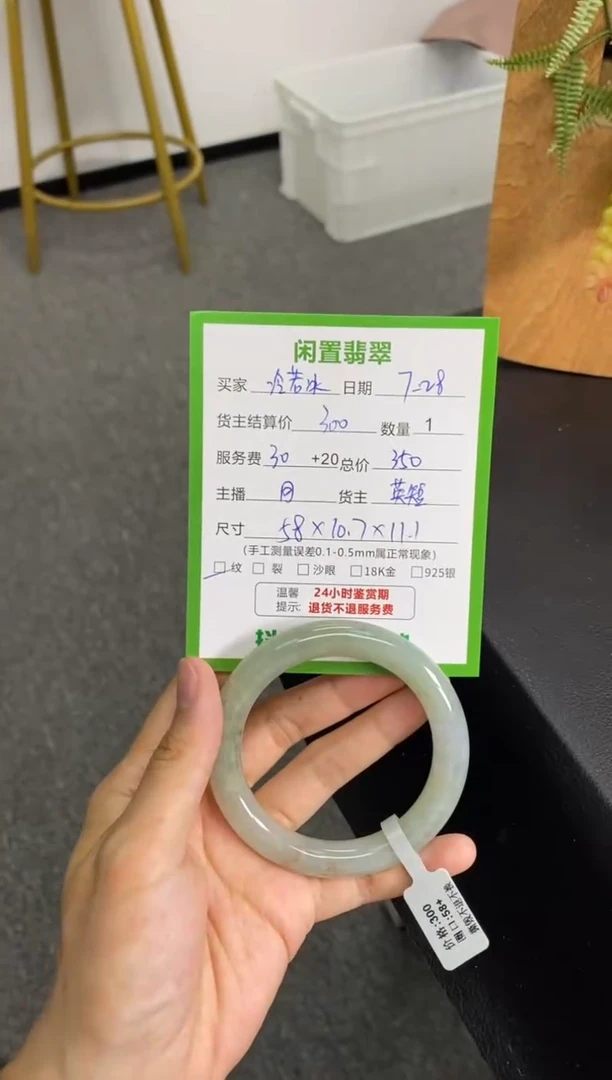 闲置翡翠
买家 冷若冰 日期 7-28
货主结算价 300 数量 1
服务费 30 +20总价 350
主播 月 货主 英短
尺寸 58×10.7×11.1
(手工测量误差0.1-0.5mm属正常现象)
☐纹 ☐裂 ☐沙眼 ☐18K金 ☐925银
温馨 24小时鉴赏期
提示: 退货不退服务费
价格:300
圈口:58+